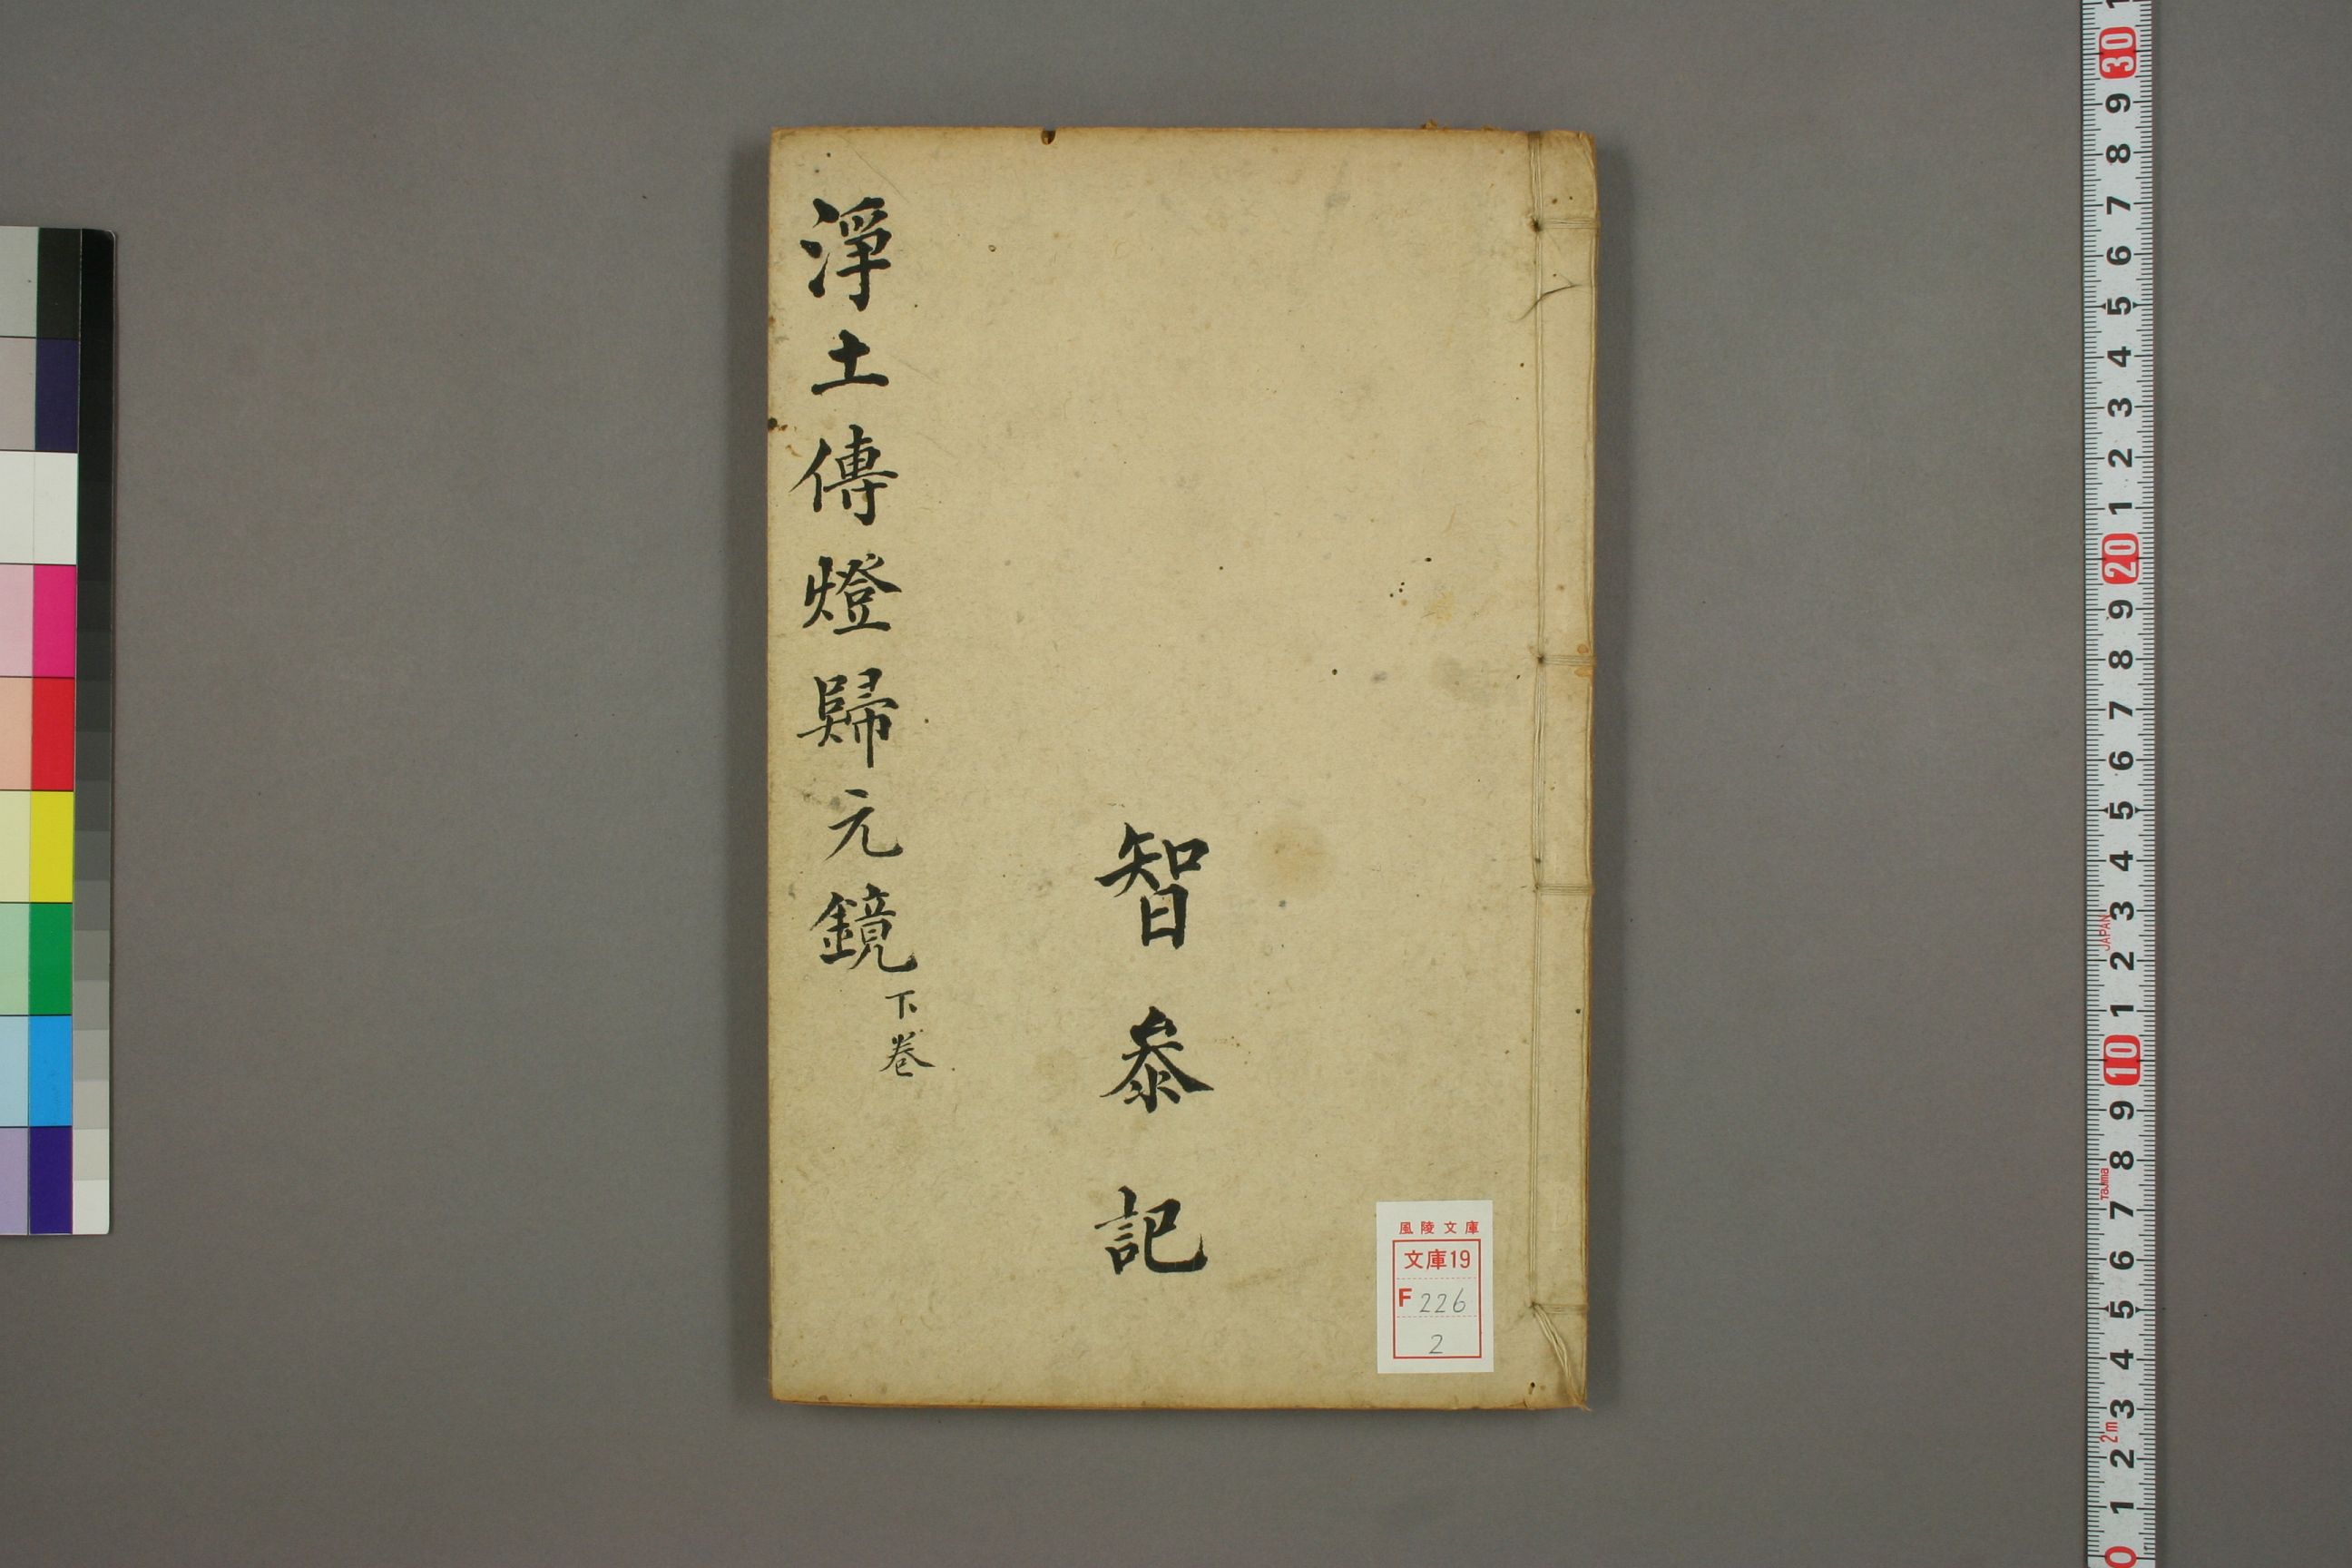 智叅記
淨土傳燈歸元鏡
下卷
風陵文庫
文庫19
F 226
2
1
30
9
8
7
6
5
4
3
2
1
20
9
8
7
6
5
4
3
JAPAN
2
1
10
9
8
Tajima
7
6
5
4
3
2m
2
1
0